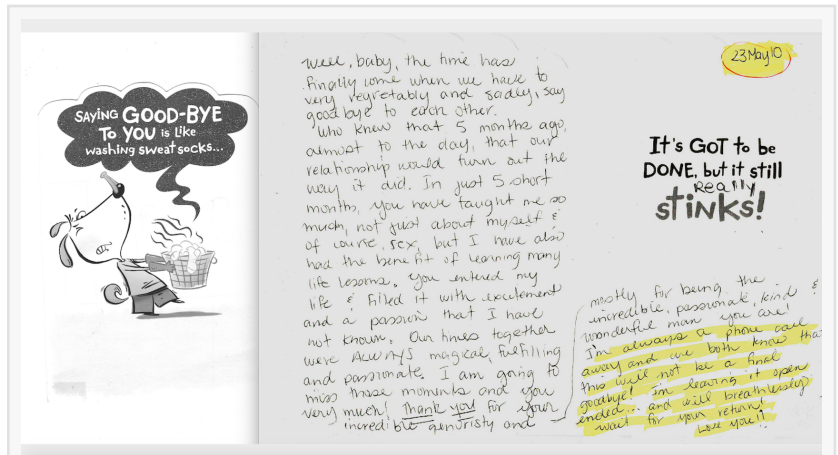 SAYING GOOD-BYE
TO YOU is Like
washing sweatsocks...
Well, baby, the time has
finally come when we have to
very regretably and sadly, say
goodbye to each other.
Who knew that 5 months ago,
almost to the day, that our
relationship would turn out the
way it did. In just 5 short
months, you have taught me so
much, not just about myself &
of course, sex, but I have also
had the benefit of learning many
life lessons. You entered my
life & filled it with excitement
and a passion that I have
not known. Our times together
were ALWAYS magical, fulfilling
and passionate. I am going to
miss those moments and you
very much! Thank you! for your
incredible generisty and
23 May 10
It's GOT to be
DONE, but it still
Really
stinks!
mostly for being the
incredible, passionate, kind &
wonderful man you are!
I'm always a phone call
away and we both know that
this will not be a final
goodbye! I'm leaving it open
ended... and will breathlessly
wait for your return!
Love you!!